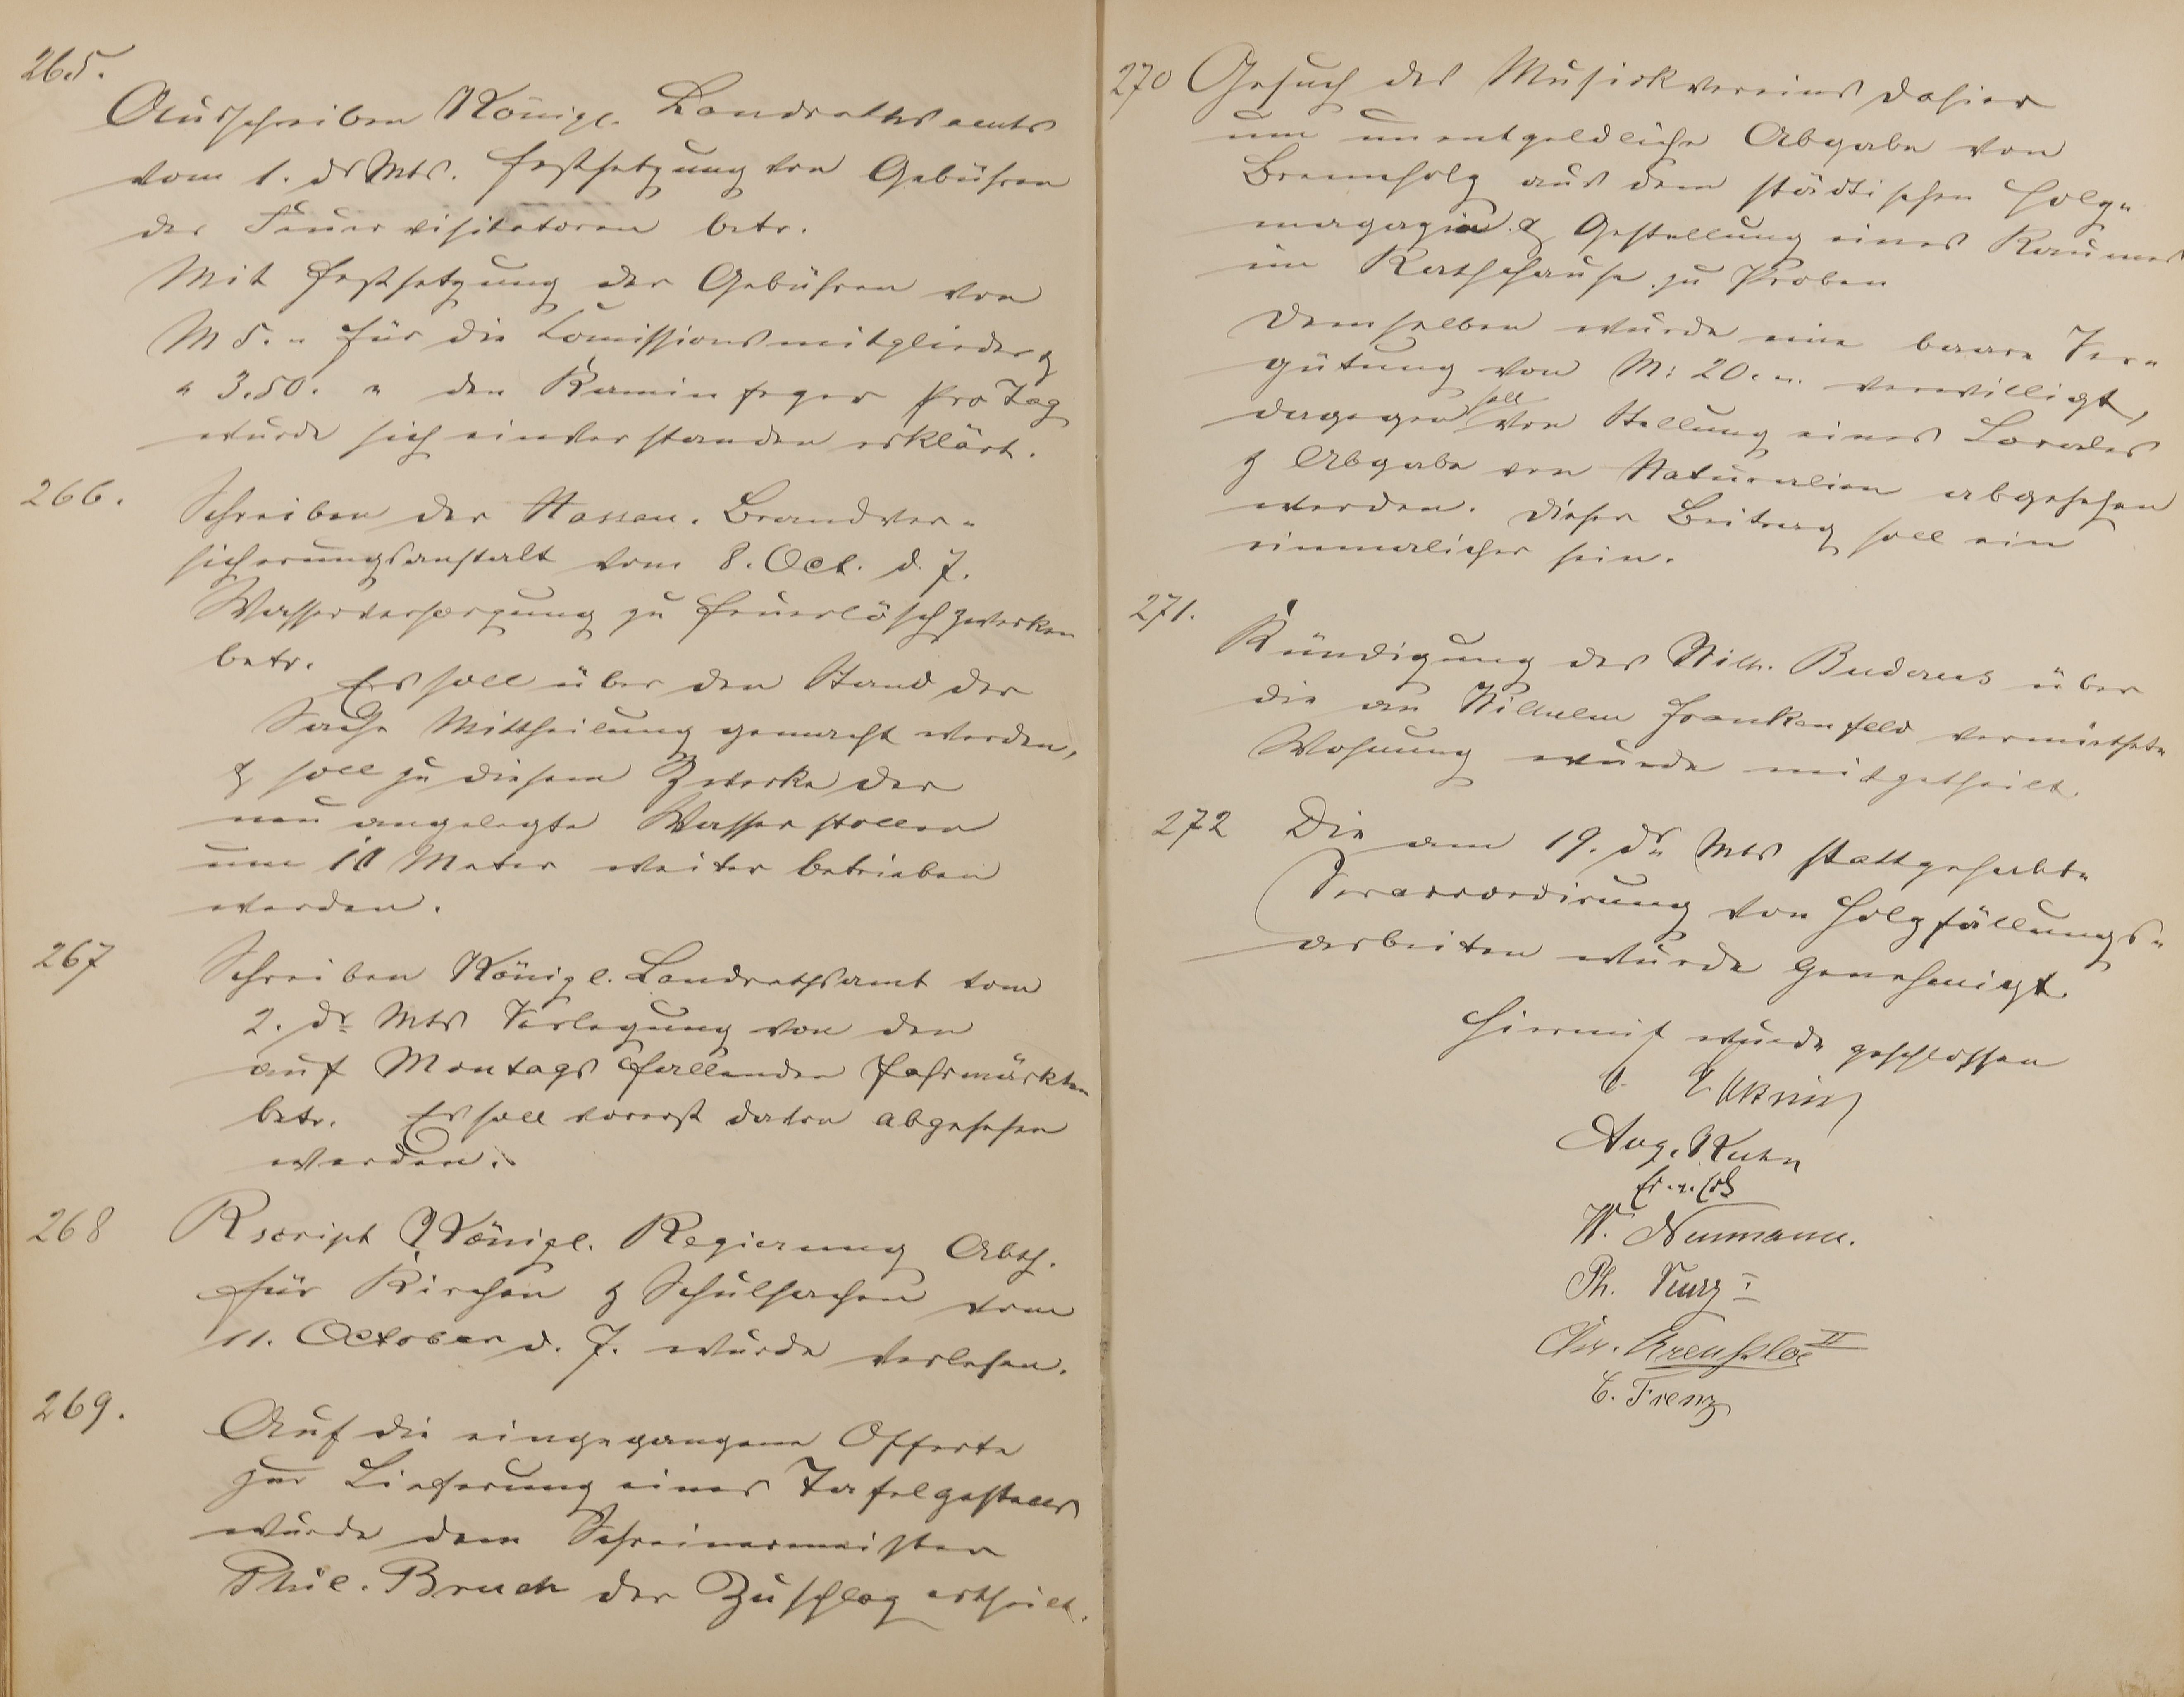 265.
Ausschreiben Königl. Landrathsamts
vom 1. ds Mts. Festsetzung von Gebühren
der Feuervisitatoren betr.
Mit Festsetzung der Gebühren von
M 5. „ für die Comissionsmitglieder &
„ 3.50. „ den Kaminfeger pro Tag
wurde sich einverstanden erklärt.
266.
Schreiben der Nassau. Brandver-
sicherungsanstalt vom 8. Oct. d. J.
Wasserversorgung zu Feuerlöschzwecken
betr.
Es soll über den Stand der
Sache Mittheilung gemacht werden,
& soll zu diesem Zwecke der
neu angelegte Wasserstollen
um 10 Meter weiter betrieben
werden.
267
Schreiben Königl. Landrathsamt vom
2. ds Mts Verlegung von den
auf Montags fallenden Jahrmärkten
betr. Es soll vorerst davon abgesehen
werden.
268
Rescript Königl. Regierung Abth.
für Kirchen & Schulsachen vom
11. October d. J. wurde verlesen.
269.
Auf die eingegangene Offerte
zur Lieferung eines Tafelgestells
wurde dem Schreinermeister
Phil. Bruch der Zuschlag ertheilt.
270 Gesuch des Musickvereins dahier
um unentgeldliche Abgabe von
Brennholz aus dem städtischen Holz-
magazin & Gestellung eines Raumes
im Rathhause zu Proben
Demselben wurde eine baare Ver-
gütung von M: 20. „ verwilligt,
dagegen soll von Stellung eines Locales
& Abgabe von Naturalien abgesehen
werden. Dieser Beitrag soll ein
einmaliger sein.
271.
Kündigung des Wilh. Budaeus über
die an Wilhelm Frankenfeld vermiethete
Wohnung wurde mitgetheilt.
272 Die am 19. ds Mts stattgehabte
Veraccordirung von Holzfällungs-
arbeiten wurde genehmigt.
Hiermit wurde geschlossen
Aug. Kuhn
W. Neumann.
Ph. Kurz I
Chr. II
C. Frenz